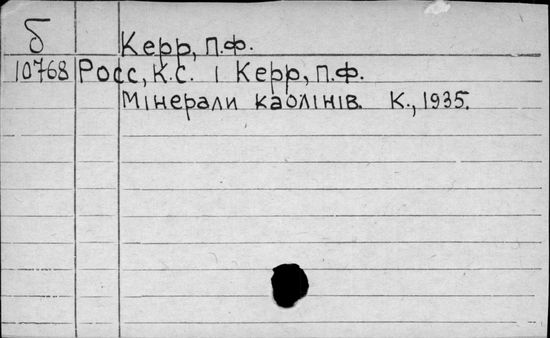 б Керр, П.Ф.
10768 Росс, К.С. і Керр, П.Ф.
Мінерали каолінів. К., 1935.